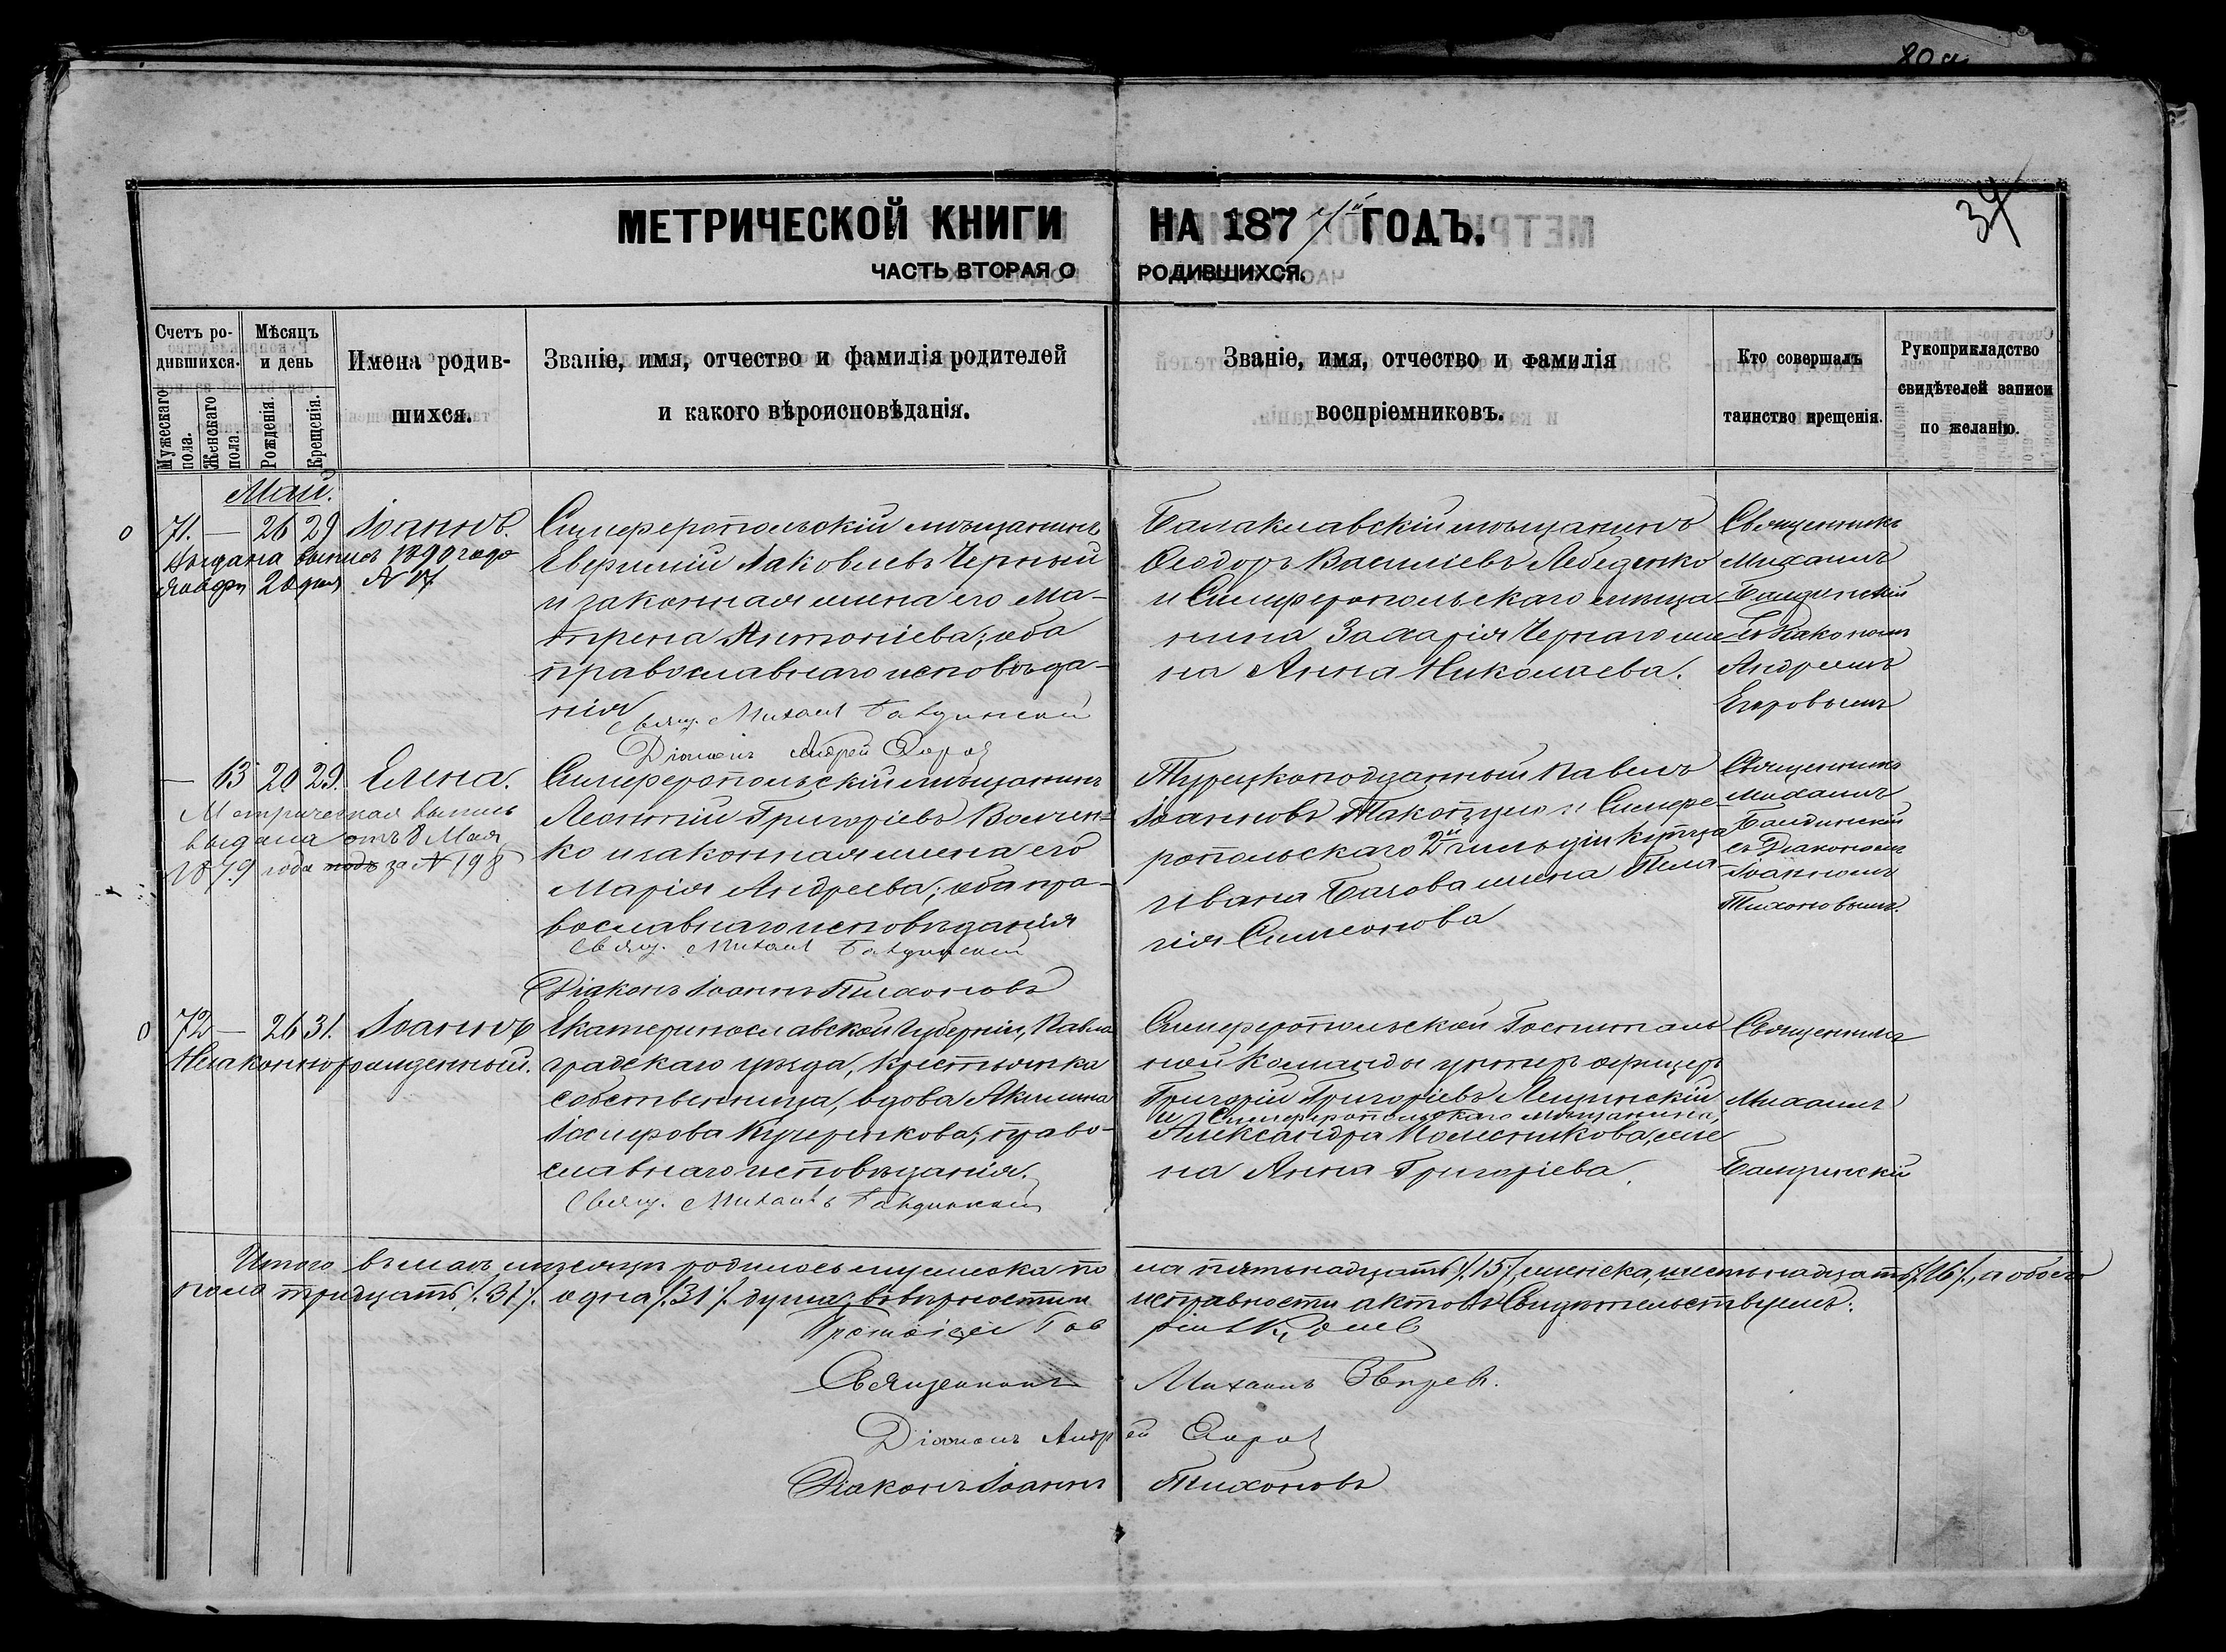 34
МЕТРИЧЕСКОЙ КНИГИ НА 187 ГОДЪ.
ЧАСТЬ ВТОРАЯ О РОДИВШИХСЯ.
Счетъ ро-
дившихся.
Мужескаго пола.
Женскаго пола.
Мѣсяцъ
и день
Рожденія.
Крещенія.
Имена родив-
шихся.
Званіе, имя, отчество и фамилія родителей
и какого вѣроисповѣданія.
Званіе, имя, отчество и фамилія
воспріемниковъ.
Кто совершалъ
таинство крещенія.
Рукоприкладство
свидѣтелей записи
по желанію.
Май.
71. — 26 29 Іоаннъ.
Выдана выпись 1890 года
20 дня №
Симферопольскій мѣщанинъ
Іаковлевъ Черный
и законная жена его Ма-
трена Антоніева; оба
православнаго исповѣда-
нія
Свящ. Михаилъ
Діаконъ Андрей
Балаклавскій мѣщанинъ
Ѳеодоръ Василіевъ Лебеденко
и Симферопольскаго мѣща-
нина Захарія Чернаго же-
на Анна Николаева.
Священникъ
Михаилъ
съ Діакономъ
Андреемъ
— 63 20 29. Елена.
Метрическая выпись
выдана отъ 8 Мая
1879 года подъ за № 198
Симферопольскій мѣщанинъ
Леонтій Григоріевъ
ко и законная жена его
Марія Андреева; оба пра-
вославнаго исповѣданія
Свящ. Михаилъ
Діаконъ Іоаннъ Тихоновъ
Турецкоподданный Павелъ
Іоанновъ и Симфе-
ропольскаго 2й гильдіи купца
Ивана жена Пела-
гія Симеонова
Священникъ
Михаилъ
съ Діакономъ
Іоанномъ
Тихоновымъ.
72 — 26 31. Іоаннъ
Незаконнорожденный.
Екатеринославской Губерніи, Павло-
градскаго уѣзда, крестьянка
собственница, вдова Акилина
Іосифова Кучеренкова; право-
славнаго исповѣданія.
Свящ. Михаилъ
Симферопольской Госпиталь
ной Команды унтеръ офицеръ
Григорій Григоріевъ
и Симферопольскаго мѣщанина,
Александра же
на Анна Григоріева.
Священникъ
Михаилъ
Итого въ маѣ мѣсяцѣ родилось мужеска по
ла пятьнадцать /.15/., женска, шестьнадцать /.16/., а обоего
пола тридцать /.31/. одна /.31/. душа; въ вѣрности и
исправности актовъ Свидѣтельствуемъ:
Протоіерей
Священникъ Михаилъ
Діаконъ Андрей
Діаконъ Іоаннъ Тихоновъ